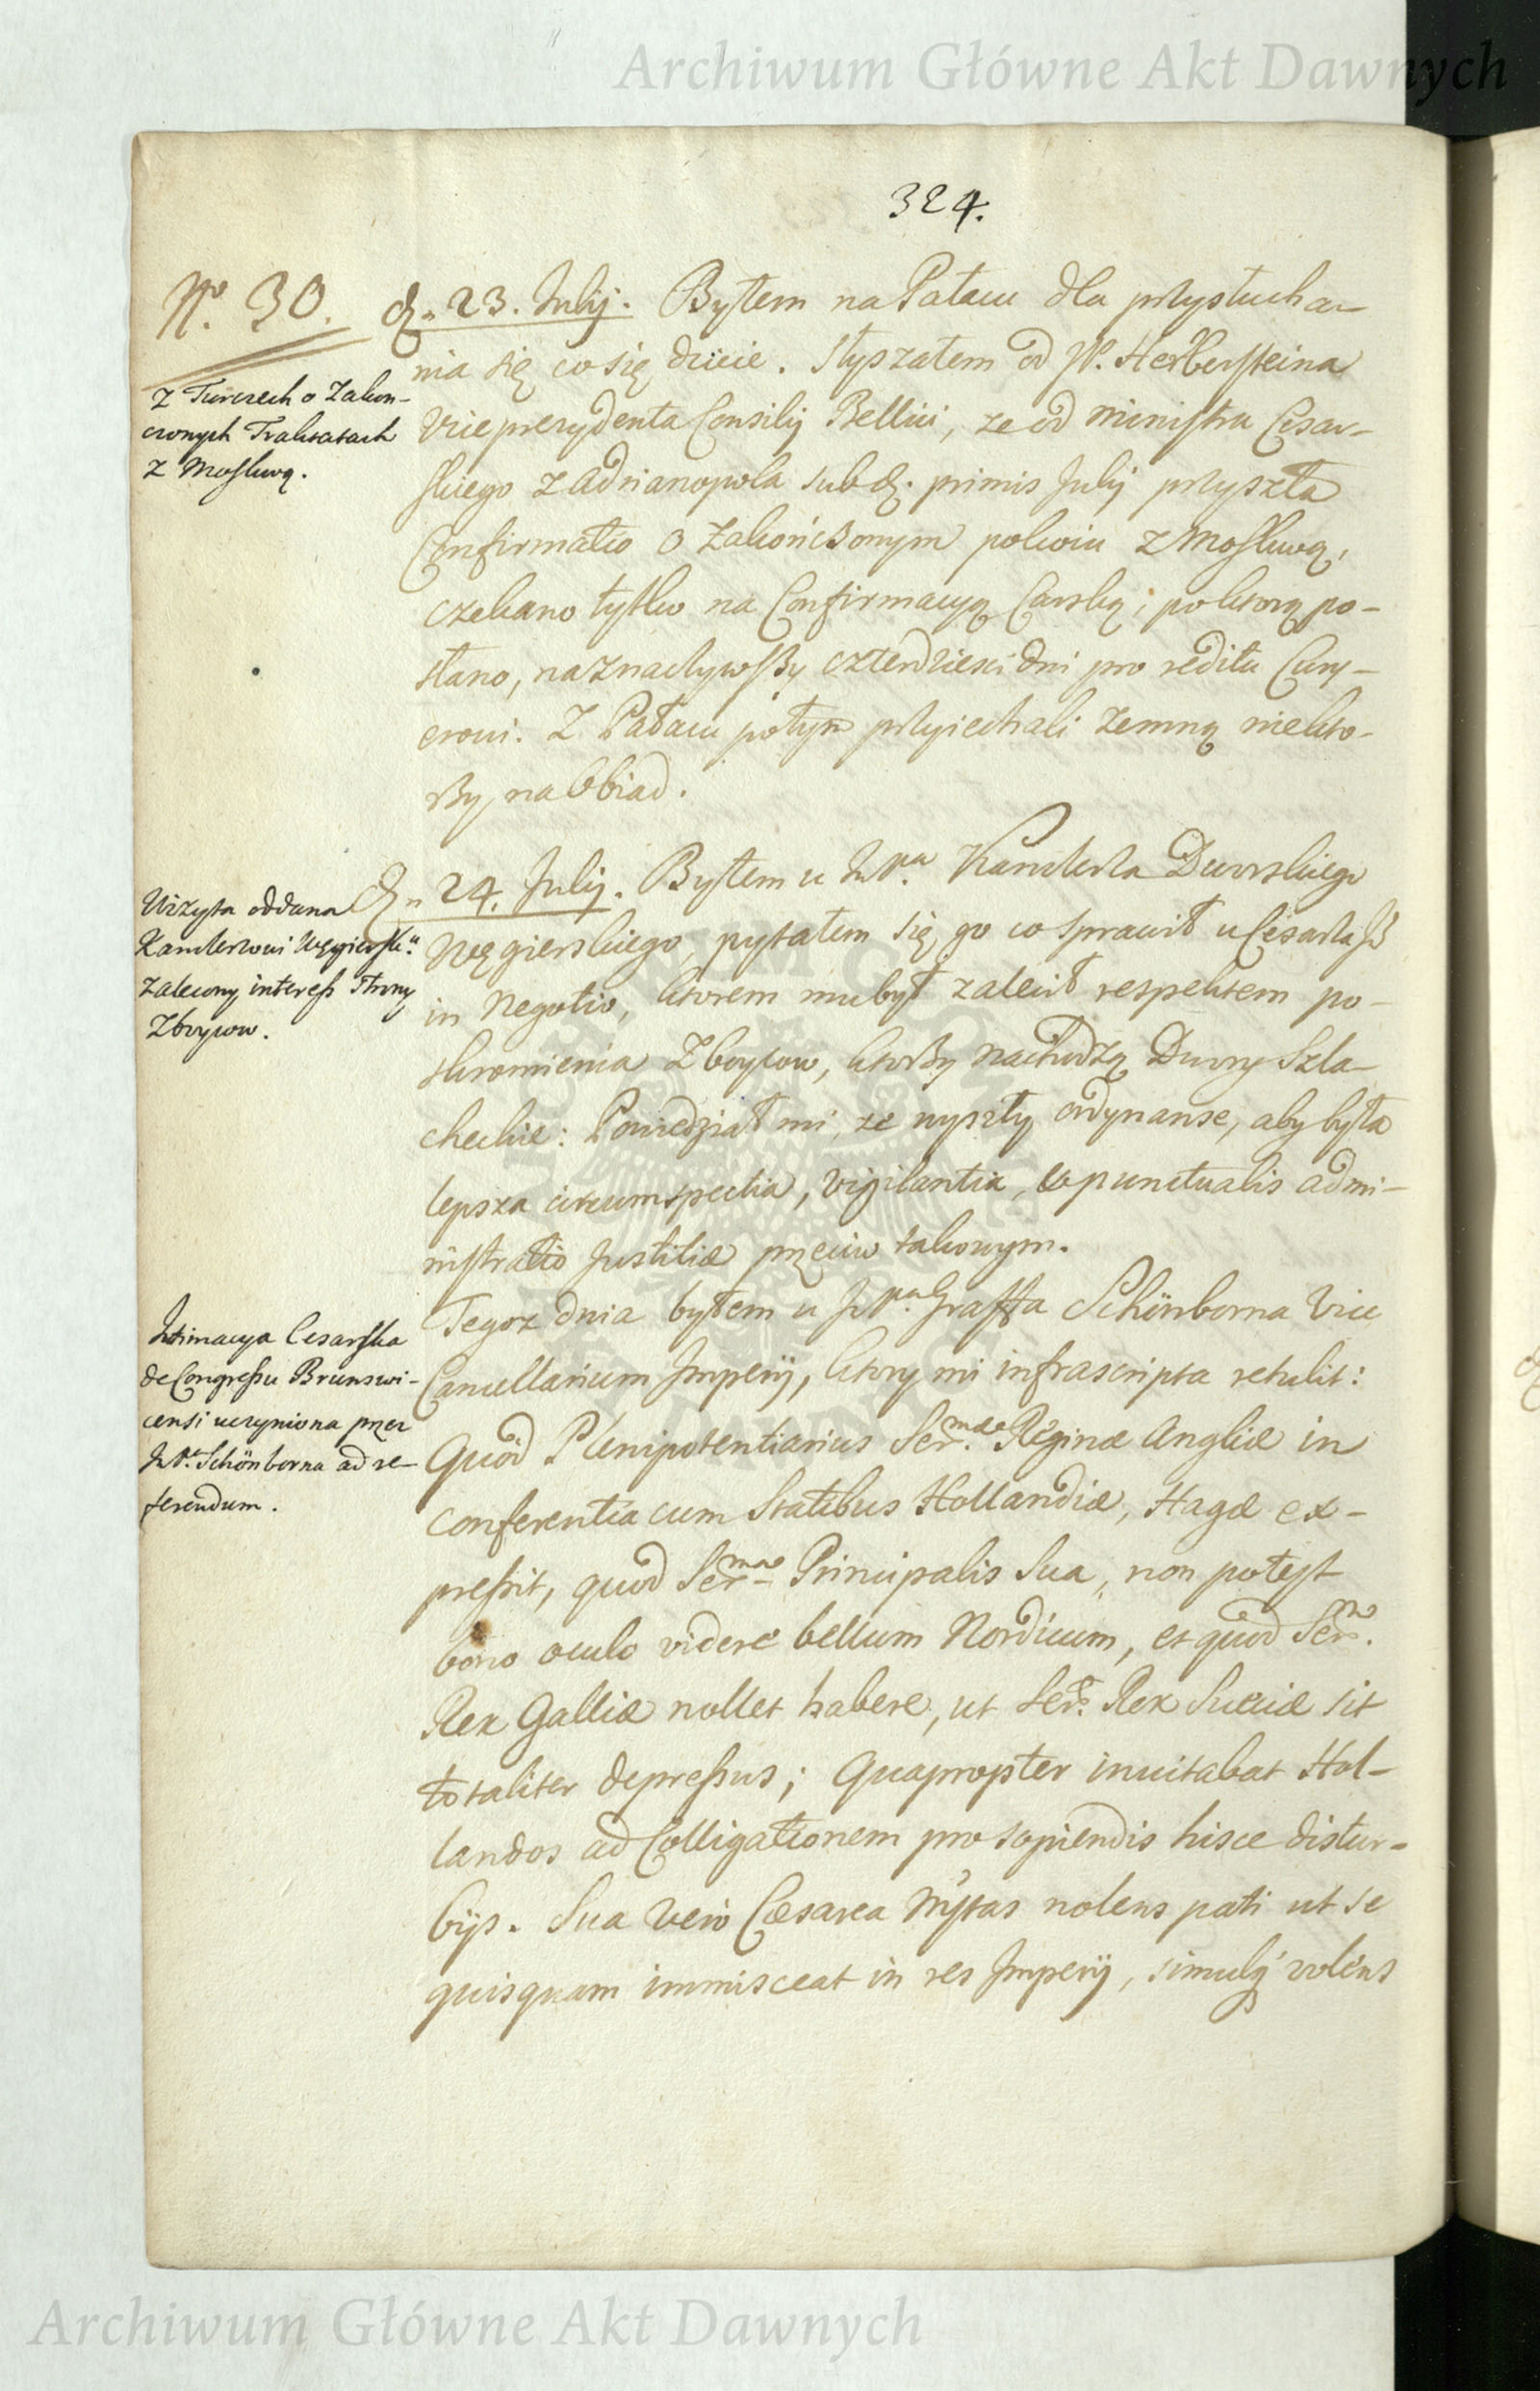 Archiwum Główne Akt Dawnych
324.
No. 30.
d. 23. Julij. Byłem na Pałacu dla przysłucha-
nia się co się dzieie. Słyszałem od JP. Herbersteina
Viceprezydenta Consilij Bellici, ze od Ministra Cesar-
skiego z Adrianopola sub d. primis Julij przyszła
Confirmatio o zakończonym pokoiu z Moskwą,
czekano tylko na Confirmacyą Carską; po ktorą po-
słano, naznaczywszy czterdzieści dni pro reditu Cury-
erowi. Z Pałacu potym przyiechali zemną niekto-
rzy na Obiad.
Z Turczech o Zakon-
czonych Traktatach
z Moskwą.
d. 24. Julij. Byłem u JmPna Kanclerza Dworskiego
Węgierskiego, pytałem się go co sprawił u Cesarza Js
in Negotio, ktorem mu był zalecił respektem po-
skromienia Zboycow, ktorzy nachodzą Dwory Szla-
checkie: Powiedział mi, ze wyszły ordynanse, aby była
lepsza circumspectia, vigilantia, et punctualis admi-
nistratio Justitiæ przeciw takowym.
Wizyta oddana
Kanclerzowi Węgiersku
zalecony interess strony
Zboycow.
Tegoz dnia byłem u JPna Graffa Schönborna Vice
Cancellarium Imperij, ktory mi infrascripta retulit:
Quod Plenipotentiarius Ser.mæ Reginæ Angliæ in
conferentia cum Statibus Hollandiæ, Hagæ ex-
pressit, quod Ser.ma Principalis Sua, non potest
bono oculo videre bellum Nordicum, et quod Ser.mo
Rex Galliæ nollet habere, ut Ser. Rex Sueciæ sit
totaliter depressus; Quapropter invitabat Hol-
landos ad Colligationem pro sopiendis hisce distur-
bijs. Sua vero Cæsarea Mtas nolens pati ut se
quisquam immisceat in res Imperij, simulq volens
Intimacya Cesarska
de Congressu Brunswi-
censi uczyniona przez
JmPa Schönborna ad re-
ferendum.
Archiwum Główne Akt Dawnych